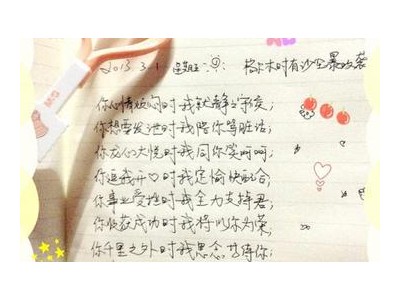 2013.3.1 星期五 格尔木时有沙尘暴攻袭
你心情烦闷时我就静静守候;
你想要发泄时我陪你骂脏话;
你开心大悦时我同你笑呵呵;
你逗我开心时我定愉快配合;
你事业受挫时我全力支撑君;
你收获成功时我将以你为荣;
你千里之外时我思念苦待你;